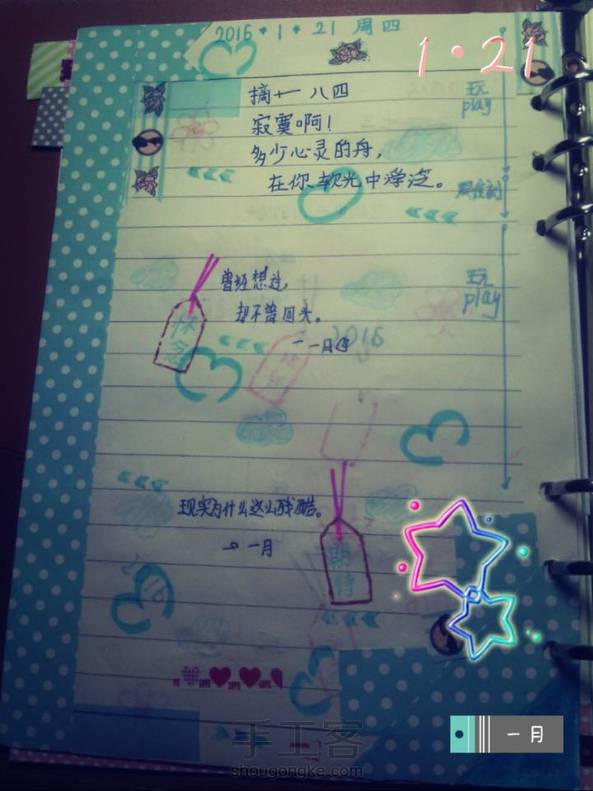 2016·1·21 周四
1·21
摘十一 八四
寂寞啊!
多少心灵的舟,
在你软光中浮泛。
玩
play
曾经想过,
却不曾回头。
怀念
玩
play
2016
现实为什么这么残酷。
一月
期待
一月
手工客
shougongke.com